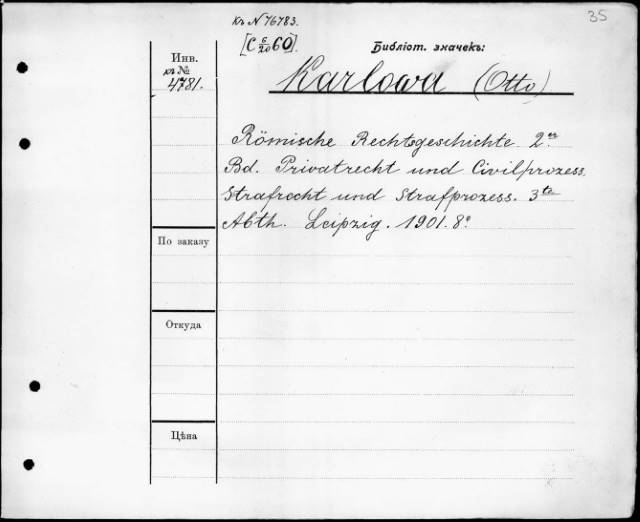 къ N 76783.
35
[C 6/20 60].
Библіот. значекъ:
Инв.
къ №
4781.
Karlowa (Otto)
Römische Rechtsgeschichte 2er
Bd. Privatrecht und Civilprozess.
Strafrecht und Strafprozess. 3te
Abth. Leipzig. 1901. 8°
По заказу
Откуда
Цѣна